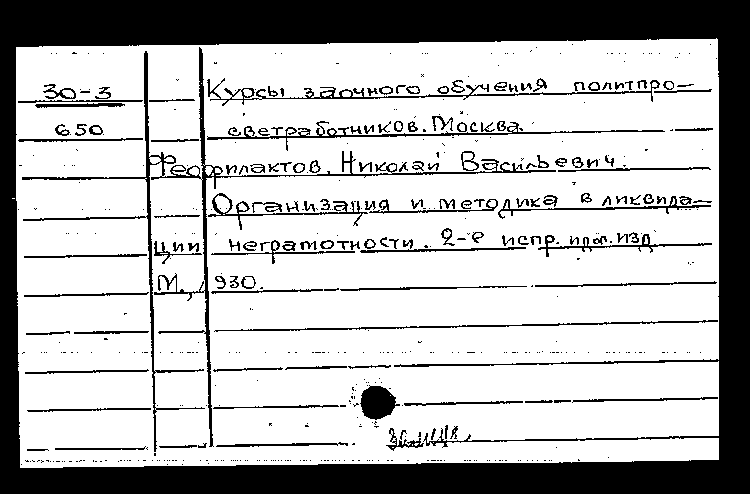 30-3
650
Курсы заочного обучения политпро-
светработников. Москва.
Феофилактов, Николай Васильевич.
Организация и методика в ликвида-
ции неграмотности. 2-е испр. и доп. изд
М., 1930.